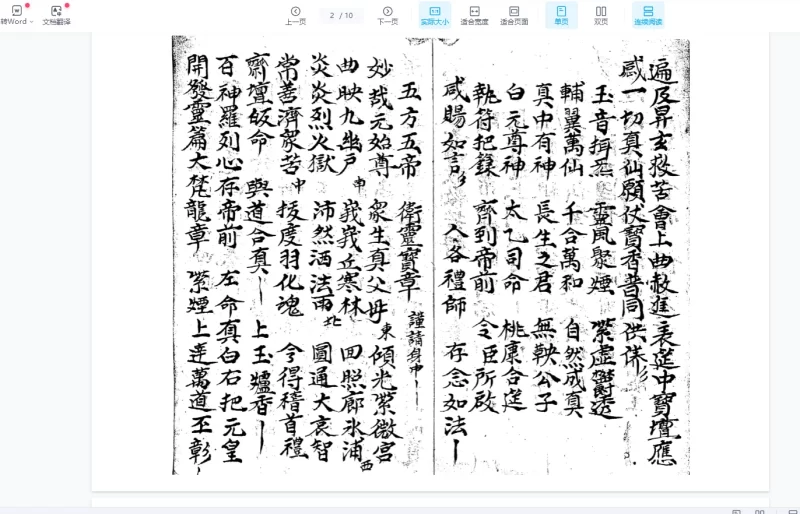 转Word
文档翻译
上一页
2 / 10
下一页
实际大小
适合宽度
适合页面
单页
双页
连续阅读
遍及昇玄救苦會上曲赦筵衷筵中寶壇應
感一切真仙願伏寳香普同供養
玉音揖 靈風聚煙 紫虛鬱透
輔翼萬仙 千合萬和 自然成真
真中有神 長生之君 無鞅公子
白元尊神 太乙司命 桃康合筵
執符把籙 齊到帝前 令臣所啟
咸賜如言 人各禮師 存念如法
五方五帝 衛靈寶章 謹請身中
妙哉元始尊 衆生真父母 東 傾光紫微宮
曲映九幽戶 申 峩峩丘寒林 回照廊氷浦 西
炎炎烈火獄 沛然洒法雨 北 圓通大哀智
常善濟衆苦 中 拔度羽化魂 令得稽首禮
齋壇皈命 與道合真 上玉爐香
百神羅列心存帝前 左命真白右把元皇
開發靈篇大梵龍章 紫煙上達萬道丕彰